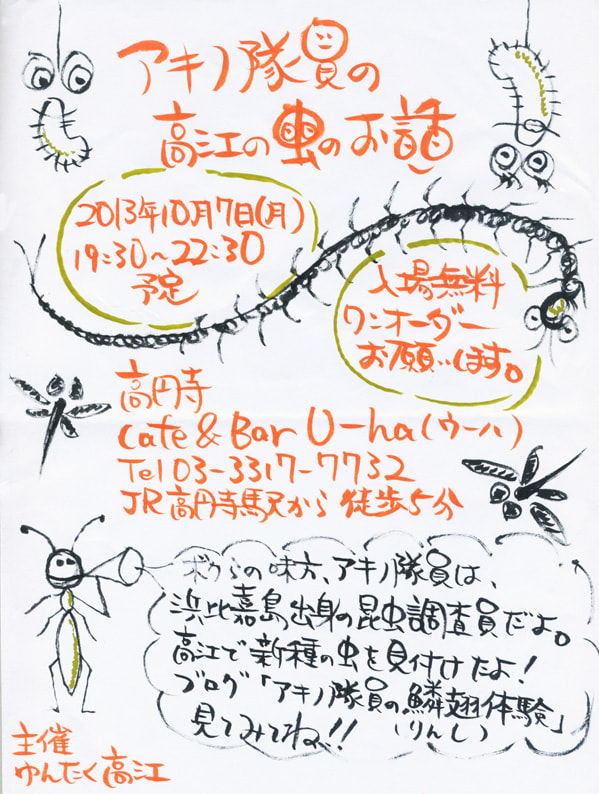 アキノ隊員の
高江の虫のお話
2013年10月7日(月)
19:30～22:30
予定
入場無料
ワンオーダー
お願いします。
高円寺
Cafe & Bar U-ha(ウーハ)
Tel 03-3317-7732
JR高円寺駅から徒歩5分
ボクらの味方、アキノ隊員は、
浜比嘉島出身の昆虫調査員だよ。
高江で新種の虫を見付けたよ!
ブログ「アキノ隊員の鱗翅体験」
(りんし)
見てみてね!!
主催
ゆんたく高江